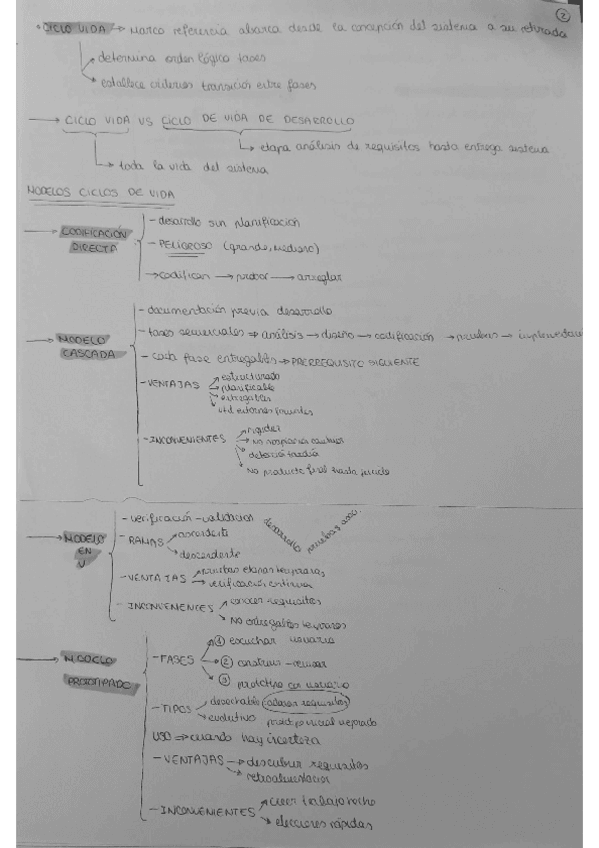 2
• CICLO VIDA → Marco referencia abarca desde la concepción del sistema a su retirada
→ determina orden lógico fases
→ establece criterios transición entre fases
→ CICLO VIDA VS CICLO DE VIDA DE DESARROLLO
↳ etapa análisis de requisitos hasta entrega sistema
↳ toda la vida del sistema
MODELOS CICLOS DE VIDA
→ CODIFICACIÓN DIRECTA
- desarrollo sin planificación
- PELIGROSO (grande, mediano)
→ codifican → probar → arreglar
→ MODELO CASCADA
- documentación previa desarrollo
- fases secuenciales ⇒ análisis → diseño → codificación → pruebas →
- cada fase entregables ⇒ PRERREQUISITO SIGUIENTE
- VENTAJAS
estructurado
planificable
entregables
útil
- INCONVENIENTES
rigidez
no
detección tardía
No producto final hasta
→ MODELO EN V
- verificación - validación
desarrollo pruebas
- RAMAS
ascendente
descendente
- VENTAJAS
pruebas etapas tempranas
verificación continua
- INCONVENIENTES
conocer requisitos
No entregables tempranos
→ MODELO PROTOTIPADO
- FASES
① escuchar usuario
② construir - revisar
③ prototipo con usuario
- TIPOS
desechable requisitos
evolutivo inicial mejorado
USO ⇒ cuando hay incerteza
- VENTAJAS
descubrir requisitos
retroalimentación
- INCONVENIENTES
creer trabajo hecho
elecciones rápidas